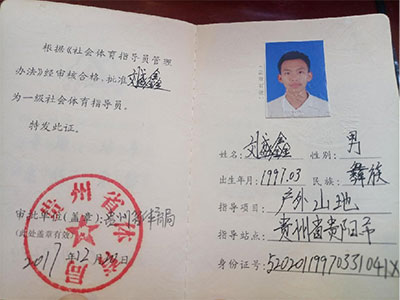 根据《社会体育指导员管理
办法》经审核合格，批准刘威鑫
为一级社会体育指导员。
特发此证。
贵州省体育局
审批单位（盖章）：贵州省体育局
（此处盖章有效）
2017年12月20日
姓名：刘威鑫 性别：男
出生年月：1997.03 民族：彝族
指导项目：户外山地
指导站点：贵州省贵阳市
身份证号：52020119970331041X